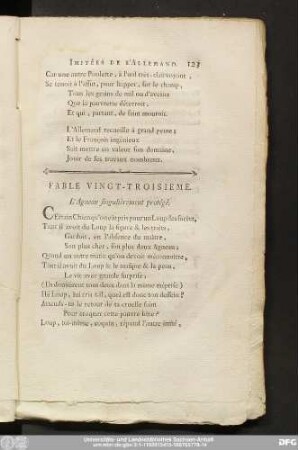 IMITÉES DE L'ALLEMAND. 127
Car une autre Poulette, à l'œil très-clairvoyant,
Se tenoit à l'affût, pour happer, sur le champ,
Tous les grains de mil ou d'avoine
Que la pauvrette déterroit,
Et qui, partant, de faim mouroit.
L'Allemand recueille à grand peine;
Et le François ingénieux
Sait mettre en valeur son domaine,
Jouir de ses travaux nombreux.
FABLE VINGT-TROISIEME.
L'Agneau singulièrement protégé.
CErtain Chien qu'on eût pris pour un Loup des
Tant il avoit du Loup la figure & les traits,
Gardoit, en l'absence du maître,
Son plus cher, son plus doux Agneau;
Quand un autre mâtin qu'on devoit méconnoître,
Tant il avoit du Loup & le corsage & la peau,
Le vit avec grande surprise;
(Ils donnoient tous deux dans la même méprise)
Hé Loup, lui cria-t-il, quel est donc ton dessein?
Attends-tu le retour de ta cruelle faim
Pour attaquer cette pauvre bête?
Loup, toi-même, coquin, répond l'autre irrité,
Universitäts- und Landesbibliothek Sachsen-Anhalt
DFG